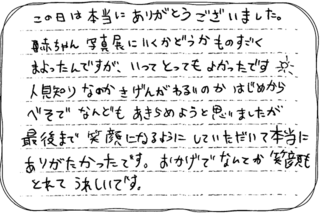 この日は本当にありがとうございました。
赤ちゃん写真展にいくかどうかものすごく
まよったんですが、いってとってもよかったです
人見知りなのかきげんがわるいのかはじめから
べそでなんどもあきらめようと思いましたが
最後まで笑顔になるようにしていただいて本当に
ありがたかったです。おかげでなんとか笑顔も
とれてうれしいです。